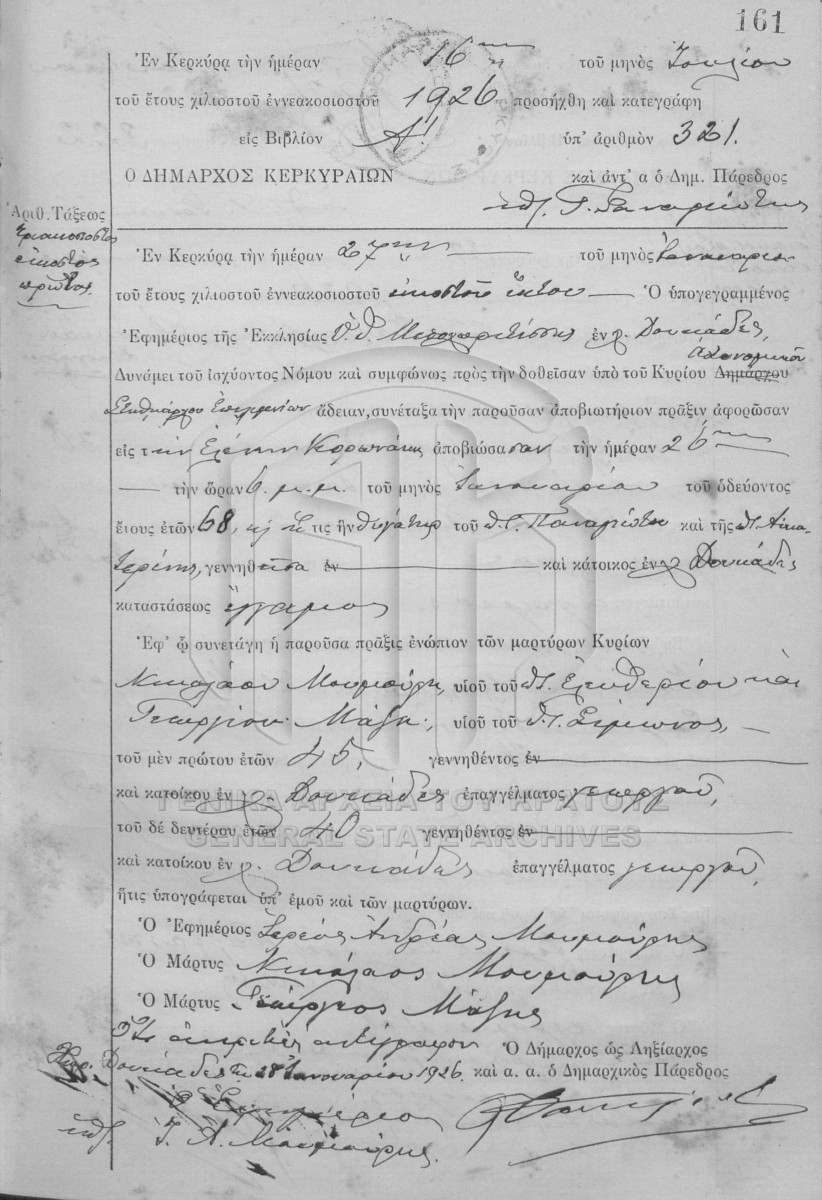 161
Ἐν Κερκύρᾳ τὴν ἡμέραν 16ην τοῦ μηνὸς Ἰουλίου
τοῦ ἔτους χιλιοστοῦ ἐννεακοσιοστοῦ 1926 προσήχθη καὶ κατεγράφη
εἰς Βιβλίον Α! ὑπ' ἀριθμὸν 321.
Ο ΔΗΜΑΡΧΟΣ ΚΕΡΚΥΡΑΙΩΝ καὶ ἀντ' α ὁ Δημ. Πάρεδρος
Ἀριθ. Τάξεως
τριακοσιοστὸς
εἰκοστὸς
πρῶτος.
Ἐν Κερκύρᾳ τὴν ἡμέραν 27ην τοῦ μηνὸς Ἰανουαρίου
τοῦ ἔτους χιλιοστοῦ ἐννεακοσιοστοῦ εἰκοστοῦ ἕκτου — Ὁ ὑπογεγραμμένος
Ἐφημέριος τῆς Ἐκκλησίας ἐν χ. Δουκάδες,
ἀστυνομικοῦ
Δυνάμει τοῦ ἰσχύοντος Νόμου καὶ συμφώνως πρὸς τὴν δοθεῖσαν ὑπὸ τοῦ Κυρίου Δημάρχου
Σταθμάρχου ἄδειαν, συνέταξα τὴν παροῦσαν ἀποβιωτήριον πρᾶξιν ἀφορῶσαν
εἰς τὴν Ἑλένην ἀποβιώσασαν τὴν ἡμέραν 26ην
— τὴν ὥραν 6. μ.μ. τοῦ μηνὸς Ἰανουαρίου τοῦ ὁδεύοντος
ἔτους ἐτῶν 68, ἥτις ἦν θυγάτηρ τοῦ π. Παναγιώτου καὶ τῆς π. Αἰκα-
τερίνης, γεννηθεῖσα ἐν — καὶ κάτοικος ἐν χ. Δουκάδες
καταστάσεως ἔγγαμος
Ἐφ' ᾧ συνετάγη ἡ παροῦσα πρᾶξις ἐνώπιον τῶν μαρτύρων Κυρίων
Νικολάου Μουμούρη, υἱοῦ τοῦ π. Ἐλευθερίου καὶ
Γεωργίου Μάζη, υἱοῦ τοῦ π. Σίμωνος, —
τοῦ μὲν πρώτου ἐτῶν 45, γεννηθέντος ἐν
καὶ κατοίκου ἐν χ. Δουκάδες ἐπαγγέλματος γεωργοῦ,
ΓΕΝΙΚΑ ΑΡΧΕΙΑ ΤΟΥ ΚΡΑΤΟΥΣ
τοῦ δὲ δευτέρου ἐτῶν 40 γεννηθέντος ἐν
GENERAL STATE ARCHIVES
καὶ κατοίκου ἐν χ. Δουκάδες ἐπαγγέλματος γεωργοῦ,
ἥτις ὑπογράφεται ὑπ' ἐμοῦ καὶ τῶν μαρτύρων.
Ὁ Ἐφημέριος Ἱερεὺς Ἀνδρέας Μουμούρης
Ὁ Μάρτυς Νικόλαος Μουμούρης
Ὁ Μάρτυς Γεώργιος Μάζης
Ὅτι ἀκριβὲς ἀντίγραφον Ὁ Δήμαρχος ὡς Ληξίαρχος
Δουκάδες τῇ 28 Ἰανουαρίου 1926. καὶ α. α. ὁ Δημαρχικὸς Πάρεδρος
ὁ Ἐφημέριος
Ἰ. Α. Μουμούρης.